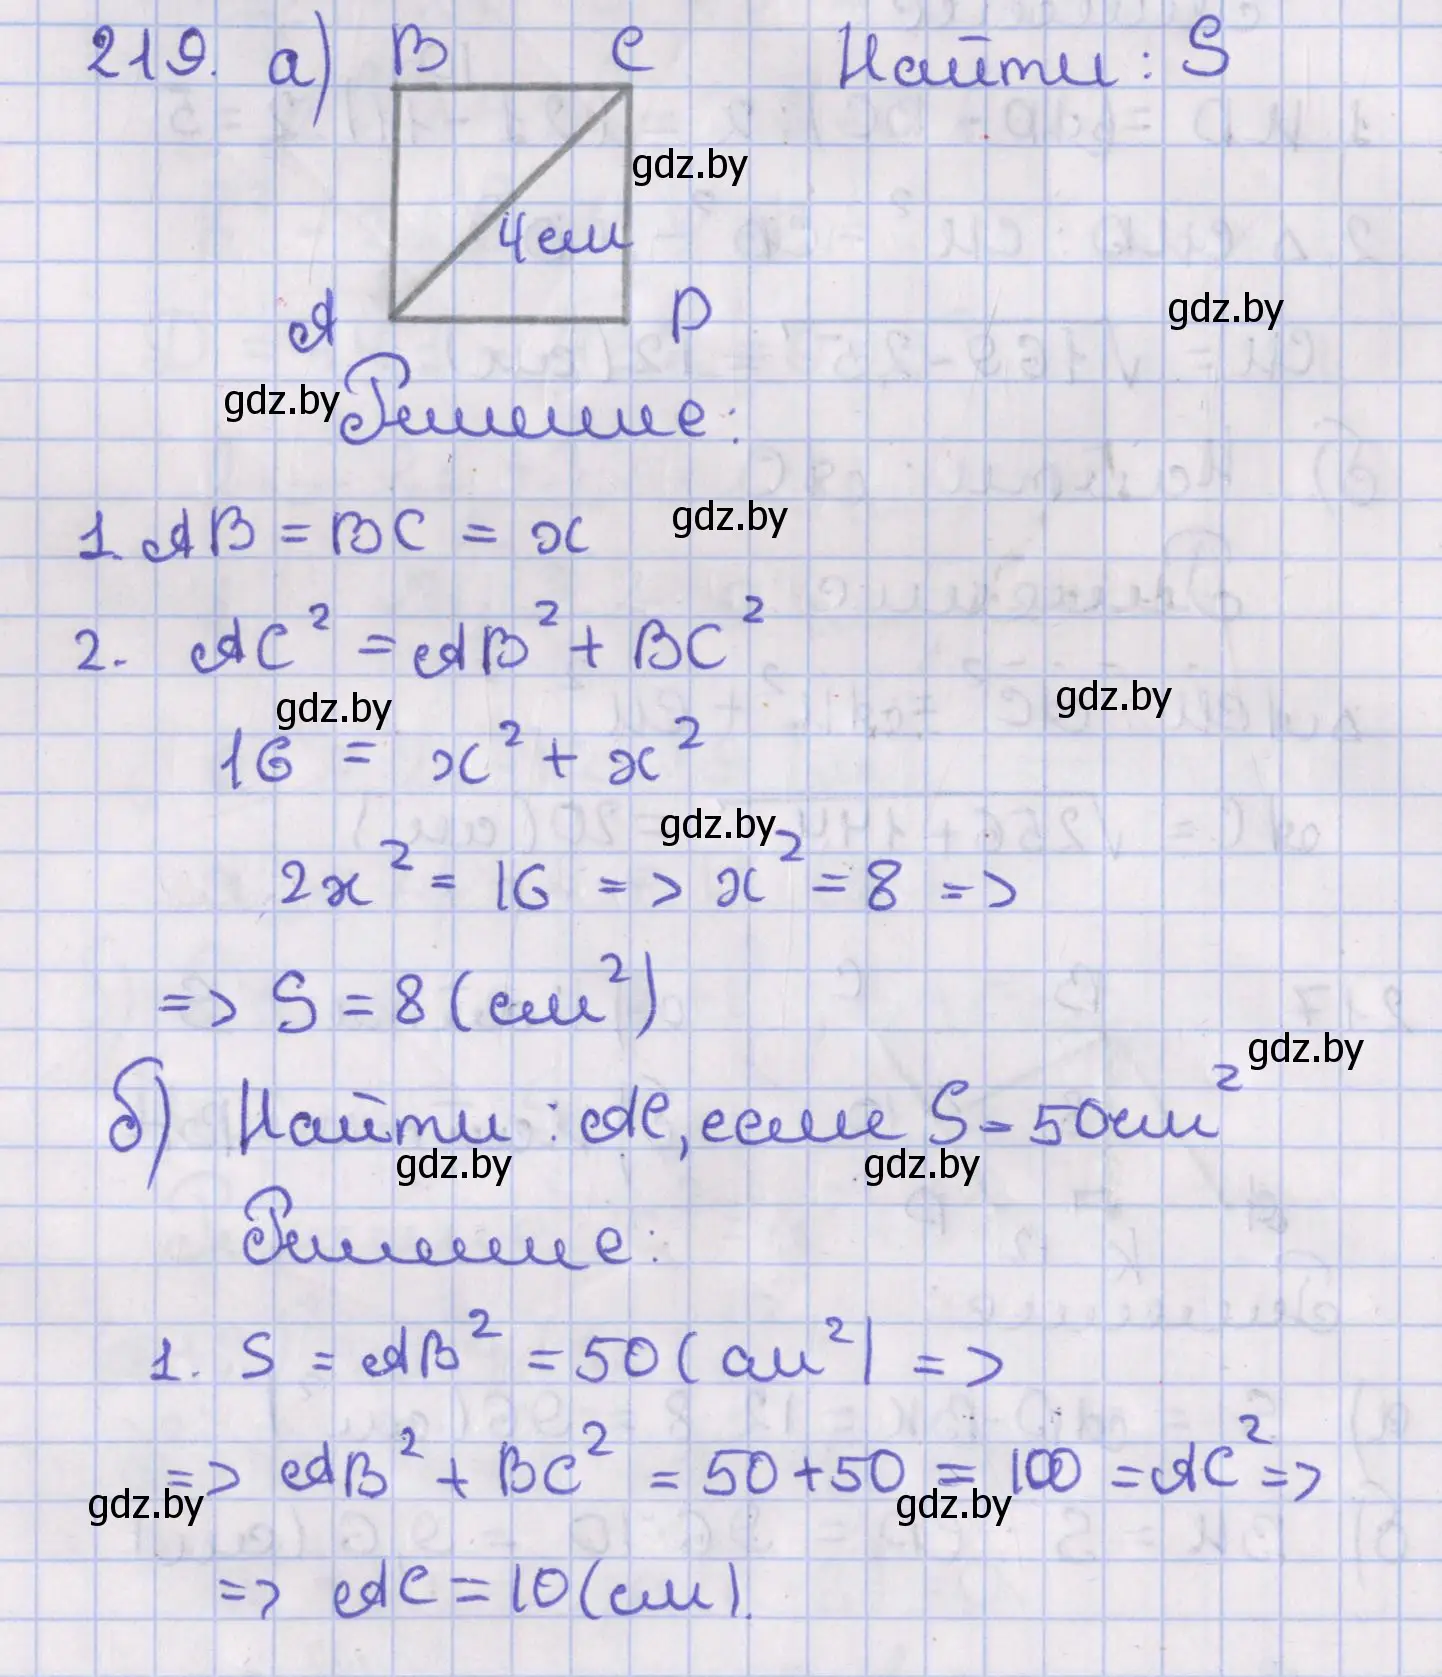 219. а) B C Найти: S
gdz.by
4 см
A D
gdz.by
gdz.by Решение:
1. AB = BC = x gdz.by
2. AC² = AB² + BC²
gdz.by gdz.by
16 = x² + x²
gdz.by
2x² = 16 => x² = 8 =>
=> S = 8 (см²)
gdz.by
б) Найти: AC, если S = 50 см²
gdz.by gdz.by
Решение:
1. S = AB² = 50 (см²) =>
=> AB² + BC² = 50 + 50 = 100 = AC² =>
gdz.by gdz.by
=> AC = 10 (см).